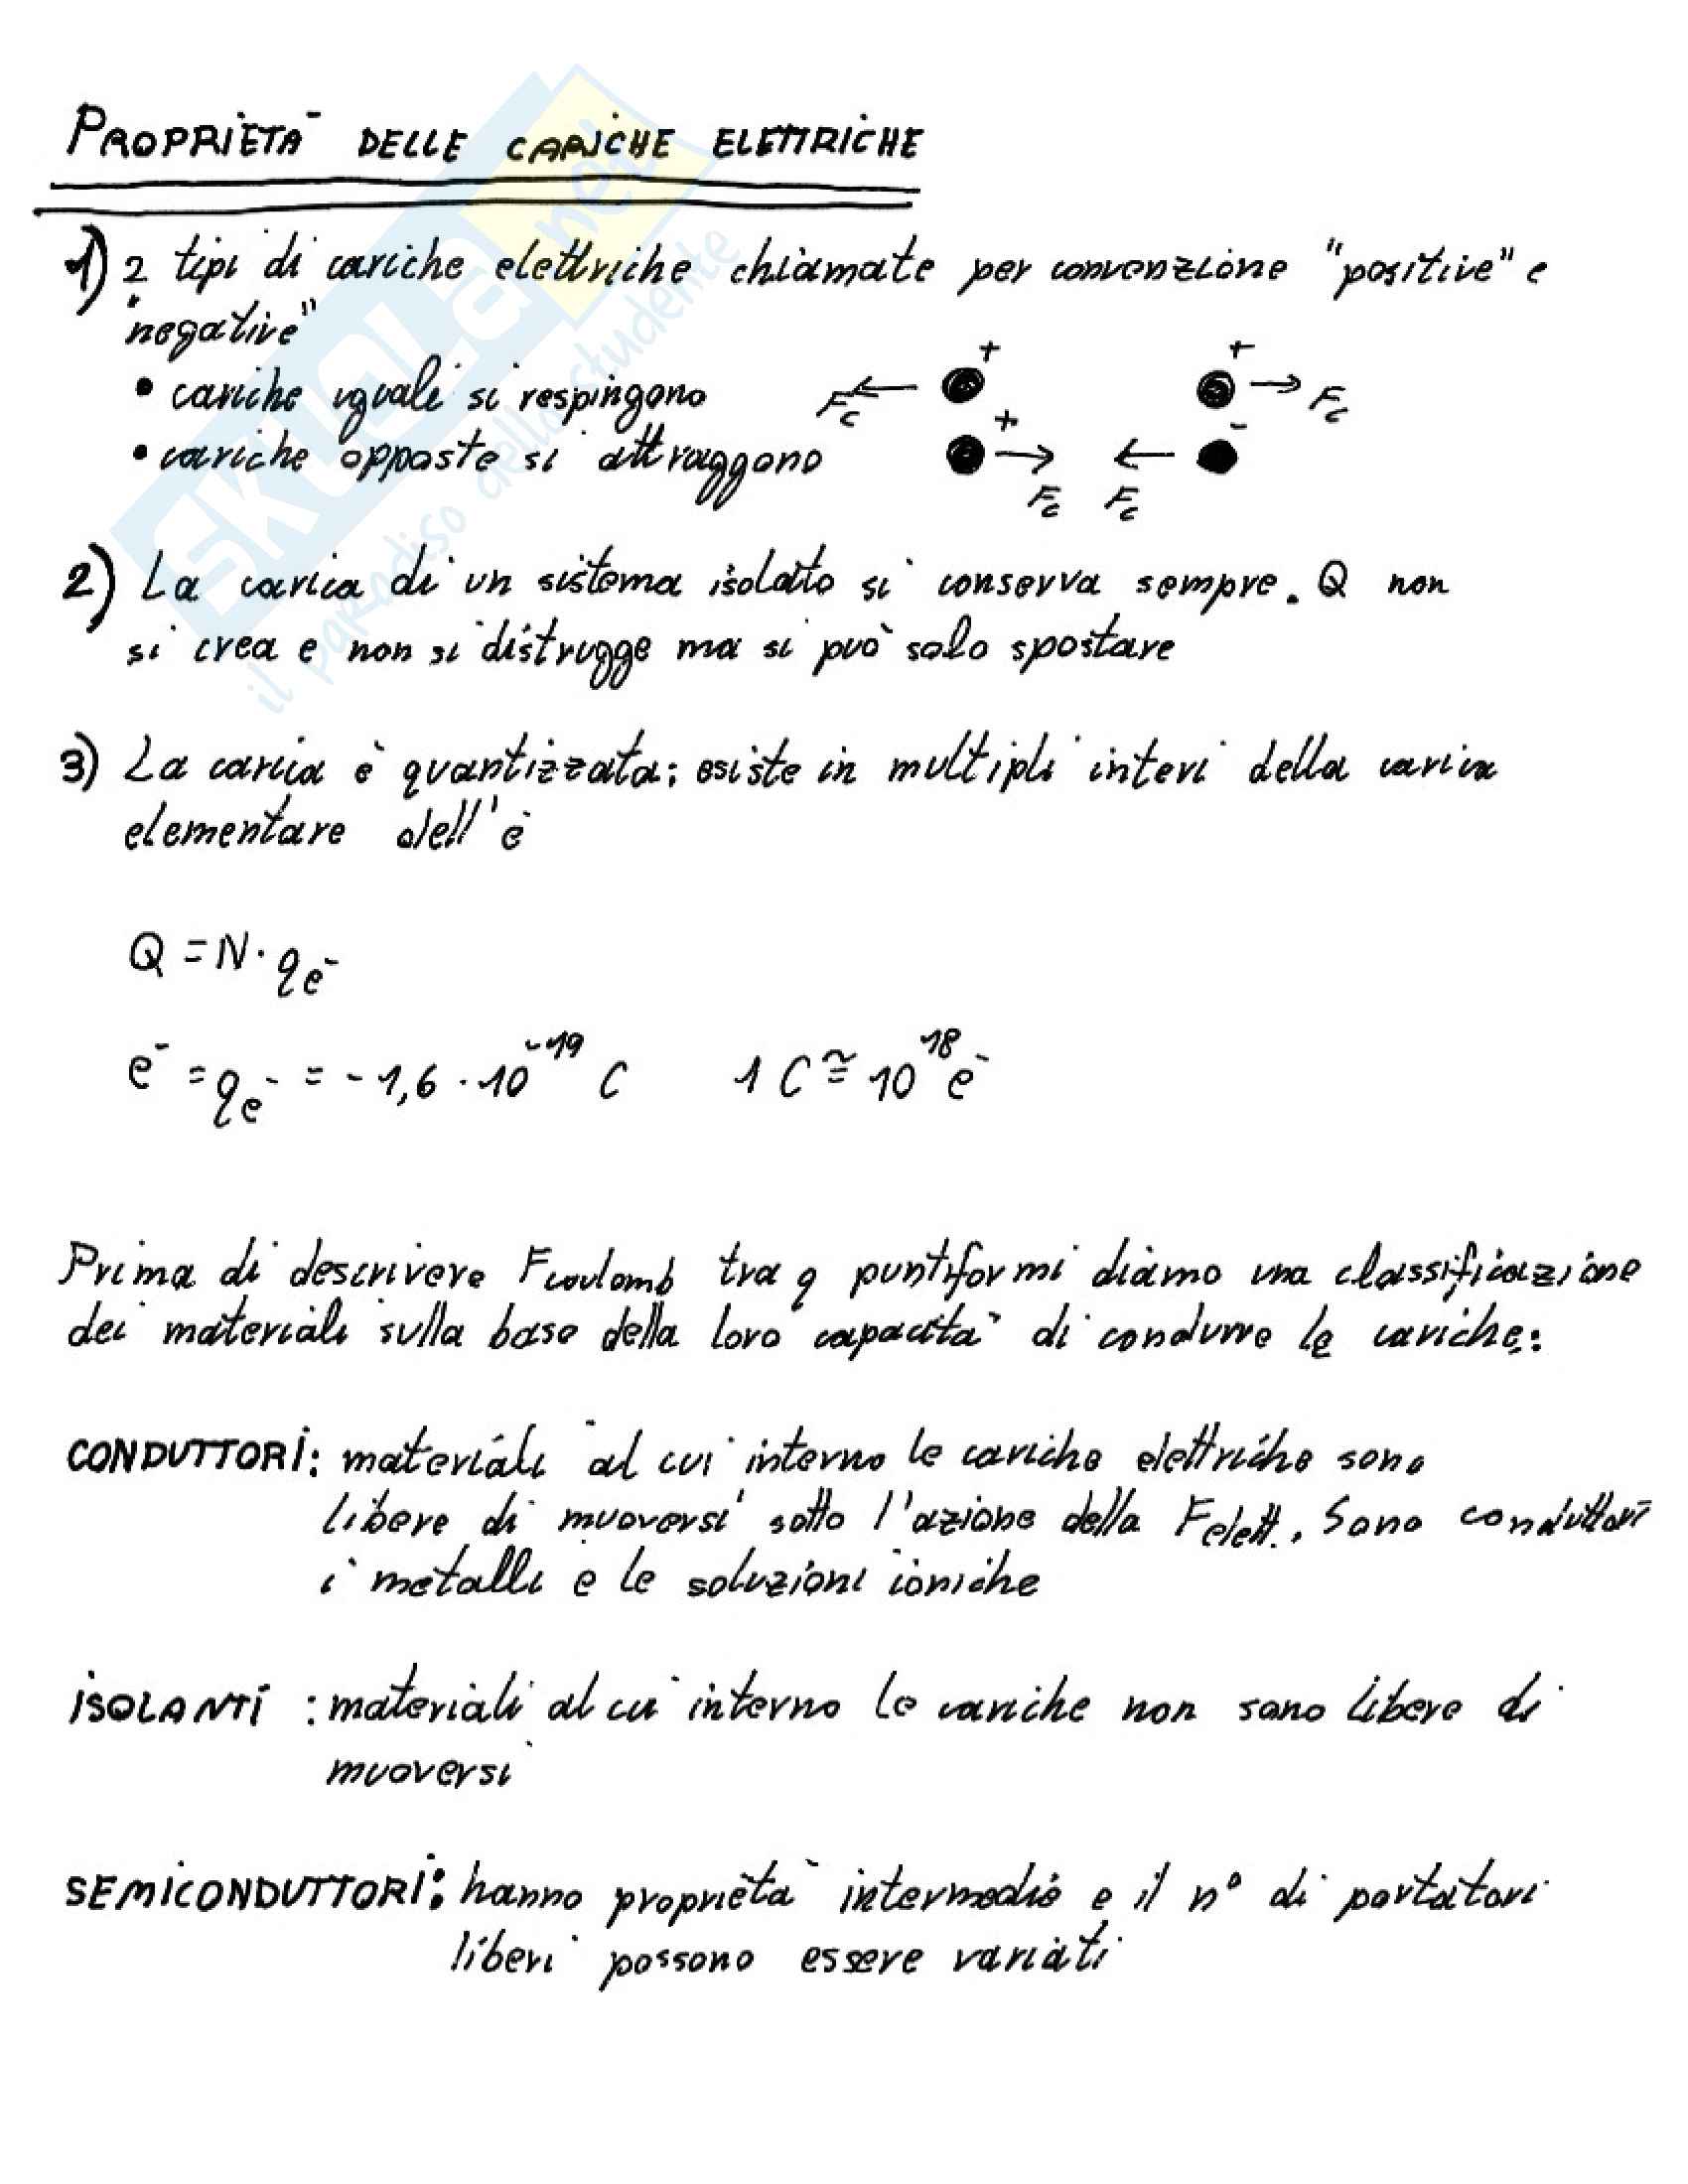 PROPRIETÀ DELLE CARICHE ELETTRICHE
1) 2 tipi di cariche elettriche chiamate per convenzione "positive" e
"negative"
• cariche uguali si respingono
+ +
Fc Fc
• cariche opposte si attraggono
+ -
Fc Fc
2) La carica di un sistema isolato si conserva sempre. Q non
si crea e non si distrugge ma si può solo spostare
3) La carica è quantizzata: esiste in multipli interi della carica
elementare dell'e⁻
Q = N · qe⁻
e⁻ = qe⁻ = -1,6 · 10⁻¹⁹ C 1 C ≅ 10¹⁸ e⁻
Prima di descrivere Fcoulomb tra q puntiformi diamo una classificazione
dei materiali sulla base della loro capacità di condurre le cariche:
CONDUTTORI: materiali al cui interno le cariche elettriche sono
libere di muoversi sotto l'azione della Felett.. Sono conduttori
i metalli e le soluzioni ioniche
ISOLANTI: materiali al cui interno le cariche non sono libere di
muoversi
SEMICONDUTTORI: hanno proprietà intermedie e il n° di portatori
liberi possono essere variati
SKUOLA.net
il paradiso dello studente